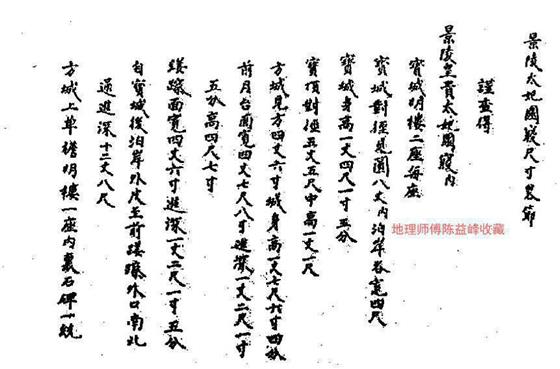 景陵太妃園寢尺寸略節
謹查得
景陵皇貴太妃園寢內
寶城明樓二座每座
寶城對徑見圓八丈內泊岸各寬四尺
寶城身高一丈四尺一寸五分
寶頂對徑五丈五尺中高一丈一尺
方城見方四丈六寸城身高一丈七尺六寸四分
前月台面寬四丈七尺八寸進深一丈二尺一寸
五分高四尺七寸
礓䃰面寬四丈六寸進深一丈二尺一寸五分
自寶城後泊岸外皮至前礓䃰外口南北
通進深十二丈八尺
方城上單檐明樓一座內裏石碑一統
地理师傅陈益峰收藏